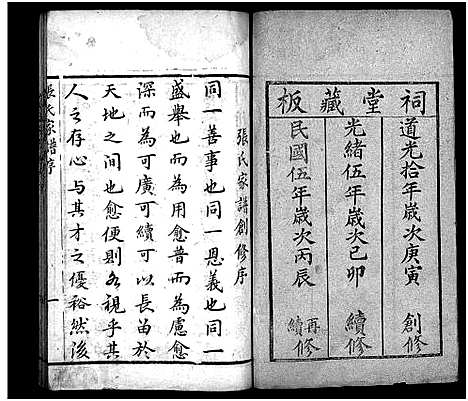 祠堂藏板
道光拾年歲次庚寅 創修
光緒伍年歲次己卯 續修
民國伍年歲次丙辰 再續修
張氏家譜創修序
同一善事也同一恩義也同一
盛舉也而為用愈普而為慮愈
深而為可廣可續可以長留於
天地之間也愈便則各視乎其
人之存心與其才之優裕然後
張氏家譜序
一